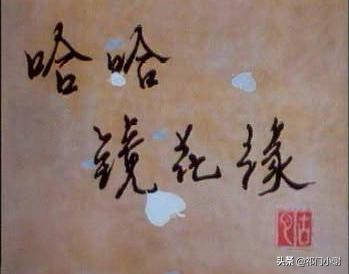 哈哈
镜花缘
头条 @祁门小谢